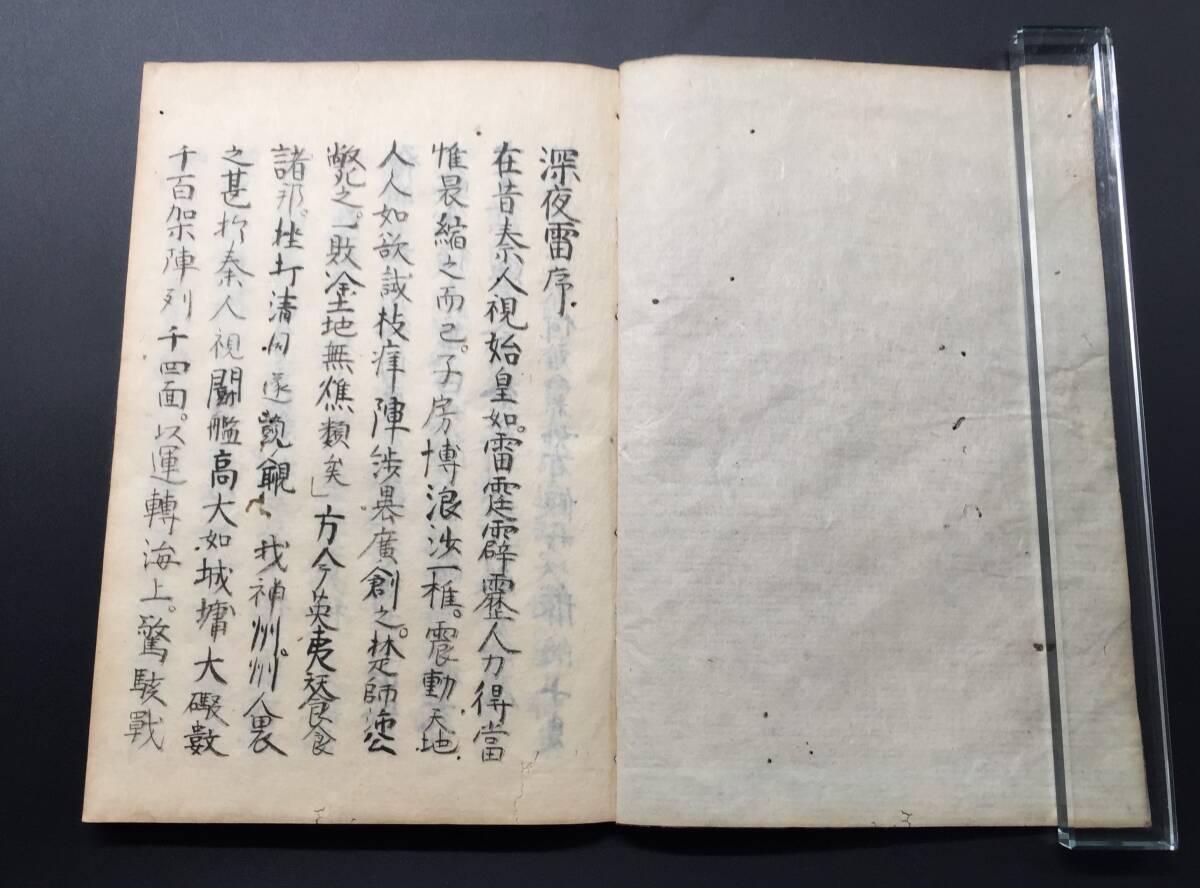 深夜雷序
在昔秦人視始皇如。雷霆霹靂人力得當
惟畏縮之而已。子房博浪沙一椎。震動天地
人人如欲試枝痒陣涉吳廣創之。楚師沛公
斃之。一敗塗地無焦類矣」方今英夷蚕食
諸邦。挫打清国遂覬覦我神州州。人畏
之甚於秦人視闘艦高大如城墉大礟数
千百架陣列千四面。以運轉海上。驚駭戰